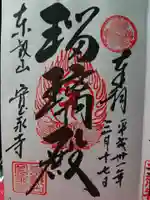 奉拝
平成卅一年
二月十七日
瑠璃殿
東叡山 寛永寺